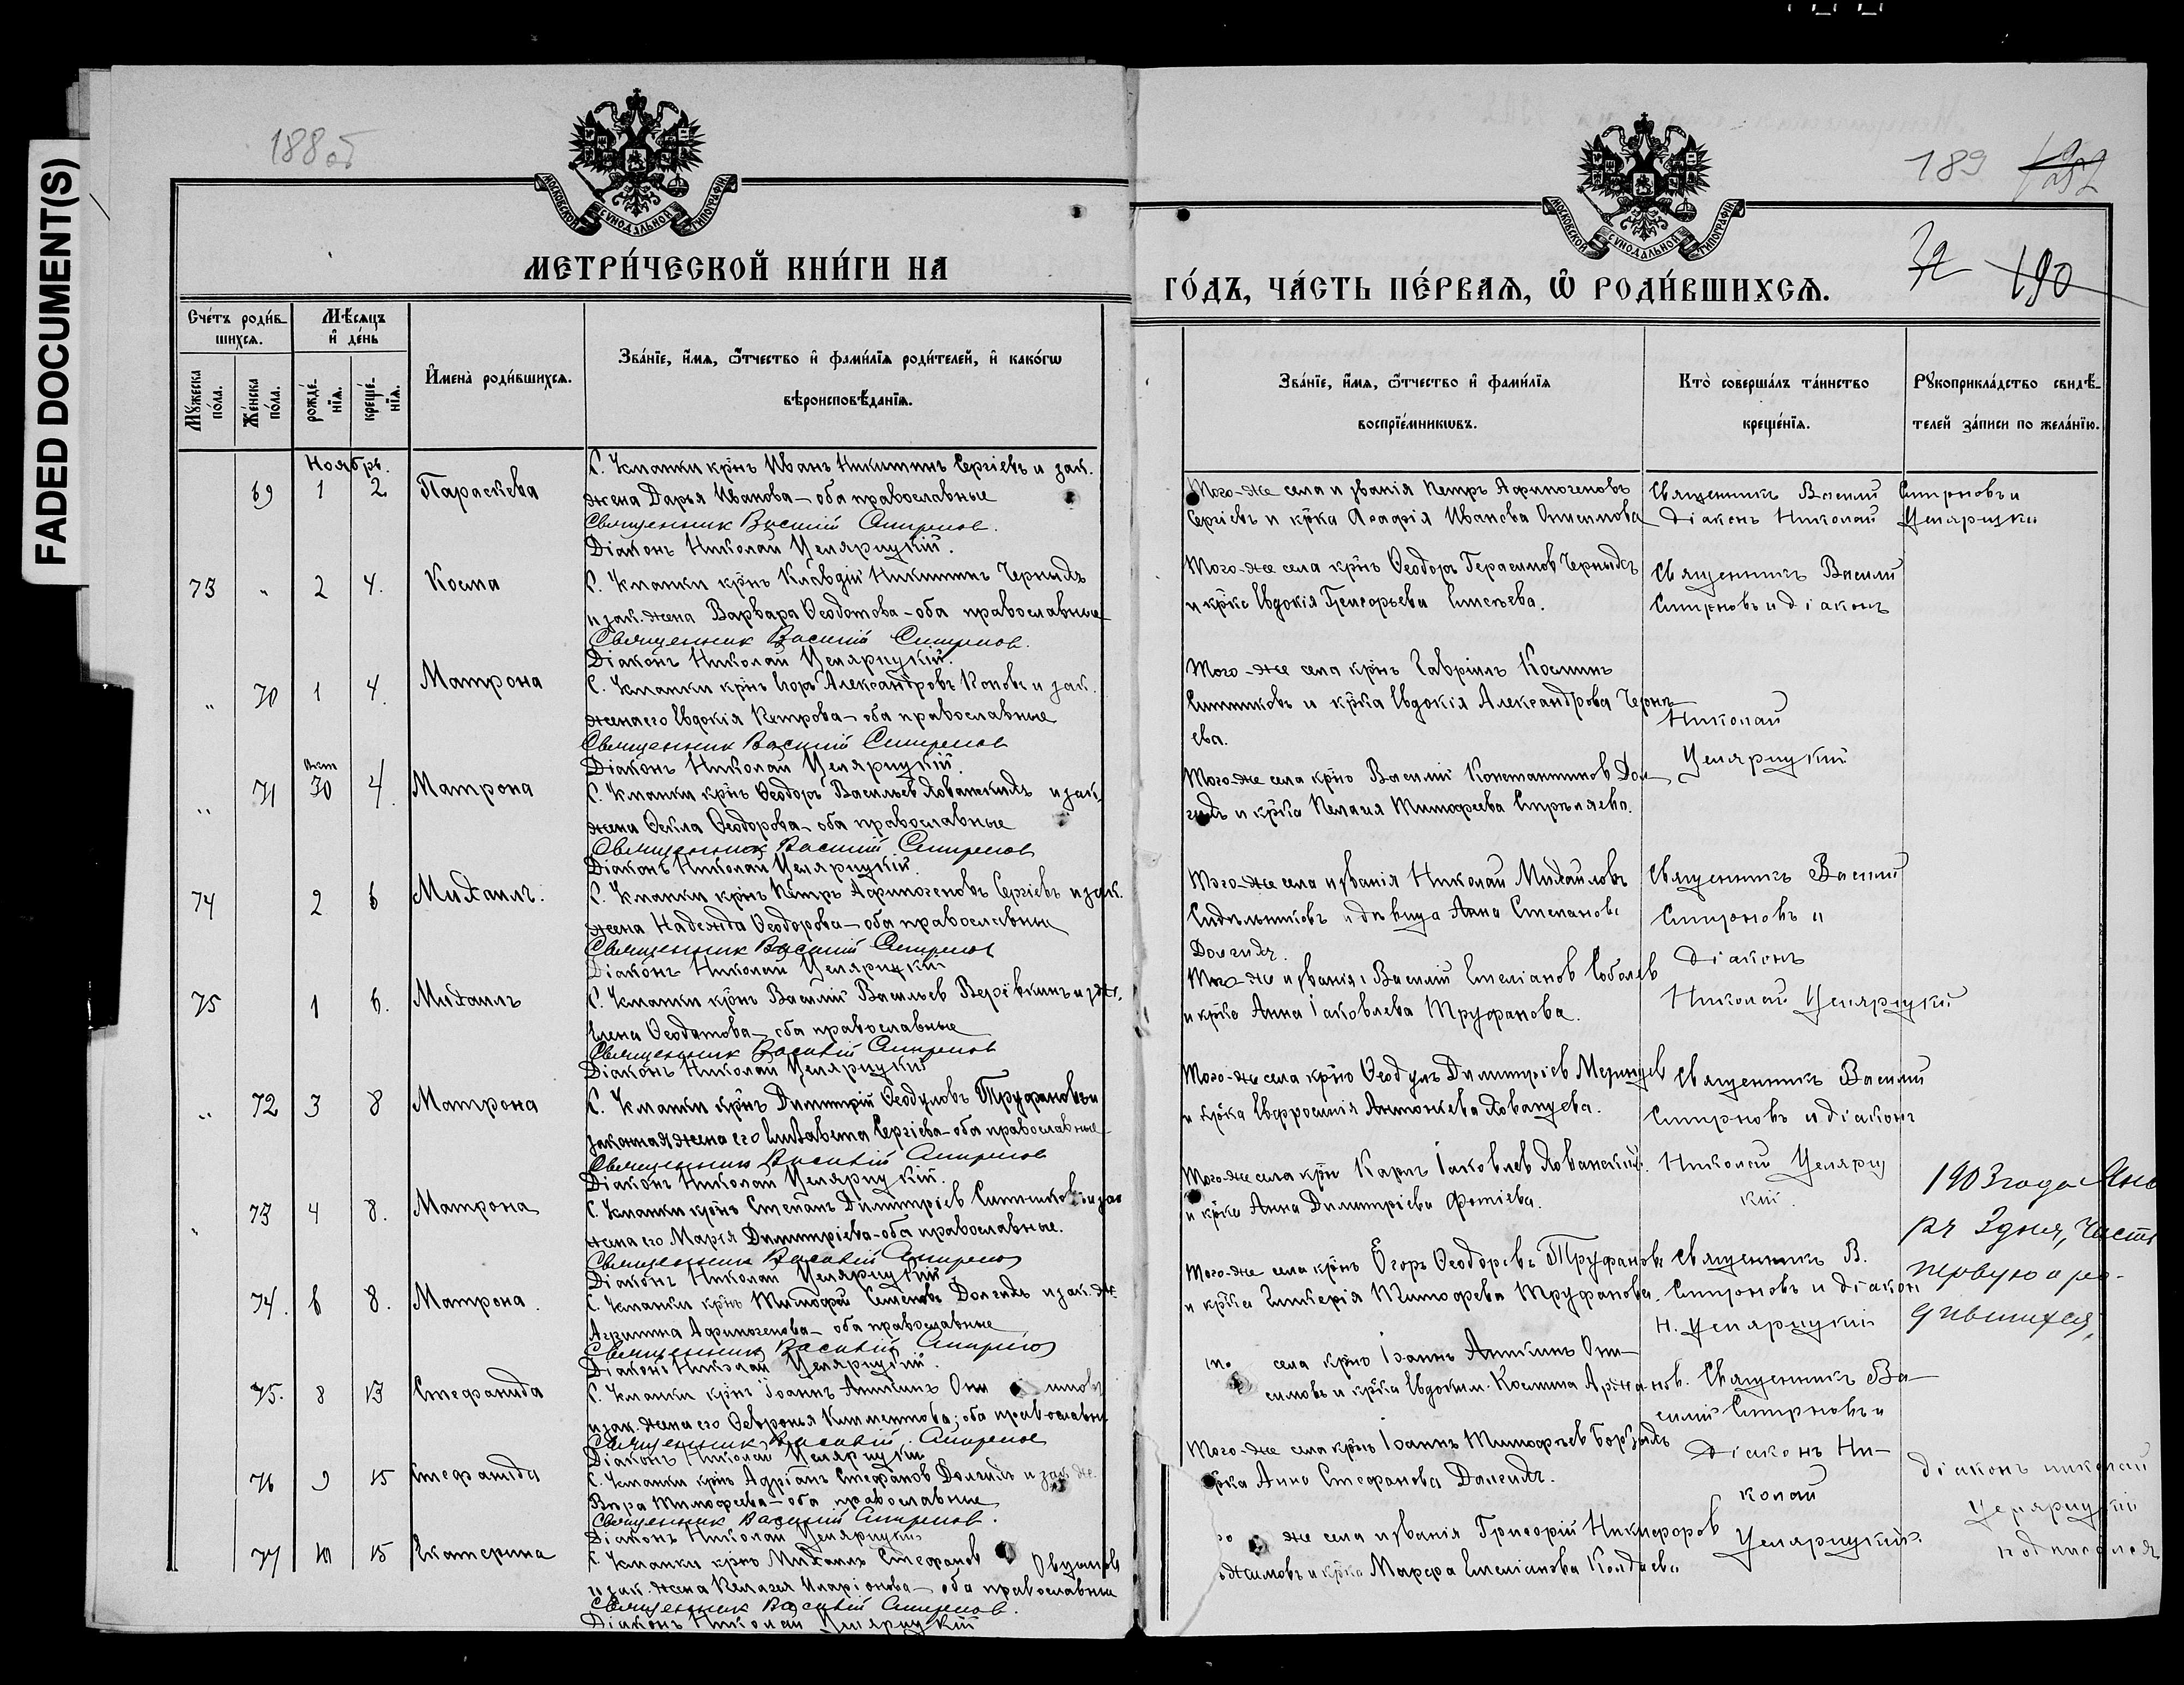 FADED DOCUMENT(S)
188 об
МОСКОВСКОЙ СѴНОДАЛЬНОЙ ТИПОГРАФІИ
МЕТРИ́ЧЕСКОЙ КНИ́ГИ НА
Сче́тъ роди́в-
шихся.
Мѣ́сяцъ
и҆ де́нь
Мꙋ́жеска
по́ла.
Же́нска
по́ла.
рожде́-
нїя.
креще́-
нїя.
И҆мена̀ роди́вшихся.
Зва́нїе, и҆́мя, ѻ҆́тчество и҆ фами́лїя роди́телей, и҆ како́гѡ
вѣроисповѣ́данїя.
Ноябрь.
69 1 2 Параскева
С. Усманки крнъ Иванъ Никитинъ Сергіевъ и зак.
жена Дарья Иванова – оба православные
Священник Василій Смирнов.
Діаконъ Николай Целярицкій.
73 " 2 4. Косма
С. Усманки крнъ Клавдій Никитинъ Черныхъ
и зак. жена Варвара Ѳеодотова – оба православные
Священник Василій Смирнов.
Діаконъ Николай Целярицкій.
" 70 1 4. Матрона
С. Усманки крнъ Егоръ Александровъ Поповъ и зак.
жена его Евдокія Петрова – оба православные
Священник Василій Смирнов
Діаконъ Николай Целярицкій.
" 71 Окт 30 4. Матрона
С. Усманки крнъ Ѳеодоръ Васильев Хованскихъ и зак.
жена Ѳекла Ѳеодорова – оба православные
Священник Василій Смирнов
Діаконъ Николай Целярицкій.
74 2 6 Михаилъ.
С. Усманки крнъ Петръ Афиногеновъ Сергіевъ и зак.
жена Надежда Ѳеодорова – оба православны
Священник Василій Смирнов
Діаконъ Николай Целярицкій
75 1 6. Михаилъ
С. Усманки крнъ Василій Васильев Верёвкинъ и
Елена Ѳеодотова – оба православные
Священник Василій Смирнов
Діаконъ Николай Целярицкій
" 72 3 8 Матрона
С. Усманки крнъ Димитрій Ѳеодуловъ Труфановъ и
законная жена его Елизавета Сергіева – оба православные
Священник Василій Смирнов
Діаконъ Николай Целярицкій.
" 73 4 8. Матрона
С. Усманки крнъ Степанъ Димитріев Ситниковъ и зак
жена его Марья Димитріева – оба православные.
Священник Василій Смирнов
Діаконъ Николай Целярицкій
74. 6 8. Матрона.
С. Усманки крнъ Тимофей Семеновъ Долгихъ и зак. же
Агрипина Афиногенова – оба православные
Священник Василій Смирнов
Діаконъ Николай Целярицкій.
75. 8 13 Стефанида
С. Усманки крнъ Іоаннъ Аникинъ Они симовъ
и зак. жена его Ѳевронья Климентова; оба православн.
Священник Василій Смирнов
Діаконъ Николай Целярицкій
76 9 15 Стефанида
С. Усманки крнъ Адріанъ Стефанов Долгихъ и зак. же.
Вѣра Тимофеева – оба православные
Священник Василій Смирнов.
Діаконъ Николай Целярицкій
77 10 15 Екатерина
С. Усманки крнъ Михаилъ Стефанов
и зак. жена Пелагея Иларіонова – оба православны
Священник Василій Смирнов.
Діаконъ Николай Целярицкій
189
МОСКОВСКОЙ СѴНОДАЛЬНОЙ ТИПОГРАФІИ
190
ГО́ДЪ, ЧА́СТЬ ПЕ́РВАѦ, Ѡ҆ РОДИ́ВШИХСѦ.
Зва́нїе, и҆́мя, ѻ҆́тчество и҆ фами́лїя
воспрїе́мникѡвъ.
Кто̀ соверша́лъ та́инство
креще́нїя.
Рꙋкоприкла́дство свидѣ́-
телей за́писи по жела́нїю.
Того-же села и званія Петръ Афиногеновъ
Сергіевъ и крка Агафія Иванова Онисимова
Священникъ Василій Смирновъ и
діаконъ Николай Целярицкій
Того-же села крнъ Ѳеодоръ Герасимов Черныхъ
и крка Евдокія Григорьева
Священникъ Василій
Смирновъ и діаконъ
Того-же села крнъ Гавріилъ Косминъ
Ситниковъ и крка Евдокія Александрова Черны-
ева.
Николай
Целярицкій
Того-же села крнъ Василій Константинов Дол-
гихъ и крка Пелагия Тимофеева Стрѣляева.
Того-же села и званія Николай Михайловъ
Сидѣльниковъ и дѣвица Анна Степанова
Долгихъ.
Священникъ Василий
Смирновъ и
діаконъ
Николай Целярицкій
Того-же и званія Василій Емеліанов Соболев
и крка Анна Іаковлева Труфанова.
Того-же села крнъ Ѳеодулъ Димитріев
и крка Евфросинія Антоньева Хованцева.
Священникъ Василій
Смирновъ и діаконъ
Николай Целярицкій.
Того-же села крнъ Карпъ Іаковлев Хованскихъ
и крка Анна Димитріева Фотіева.
Того-же села крнъ Егоръ Ѳеодоровъ Труфанов
и крка Гликерія Тимофева Труфанова.
Священникъ В.
Смирновъ и діакон
Н. Целярицкій
села крнъ Іоаннъ Аникинъ Они-
симовъ и крка Евдоким. Космина
Священникъ Ва-
силій Смирновъ и
діаконъ Ни-
колай
Целярицкій.
Того-же села крнъ Іоаннъ Тимофѣев Борзыхъ
крка Анна Стефанова Долгихъ.
же села и званія Григорій Никифоров
и крка Марфа Емеліанова Колдаева
1903 года Янва
ря 3 дня, Часть
первую о ро-
дившихся,
діаконъ николай
Целярицкій
подписался